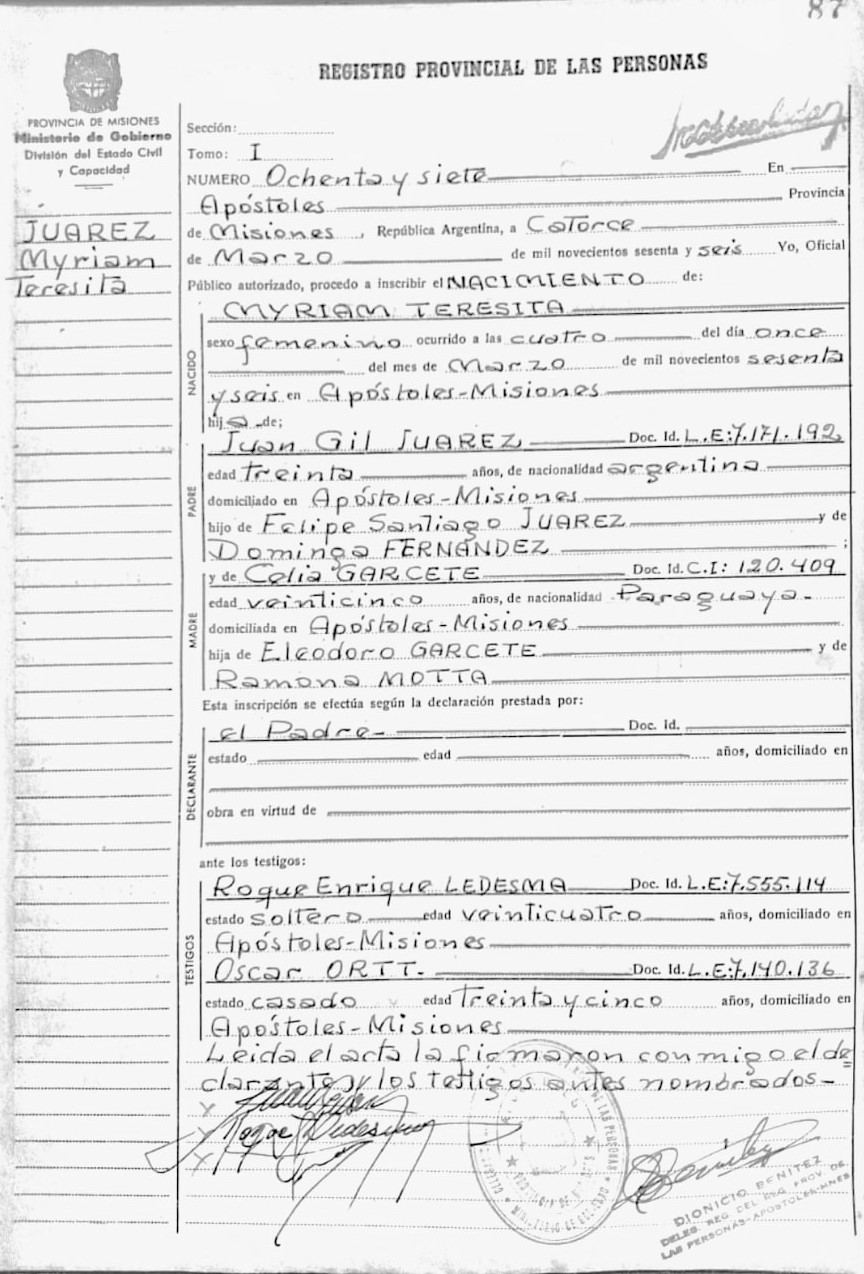 87
REGISTRO PROVINCIAL DE LAS PERSONAS
PROVINCIA DE MISIONES
Ministerio de Gobierno
División del Estado Civil
y Capacidad
JUAREZ
Myriam
Teresita
Sección:
Tomo: I
NUMERO Ochenta y siete En
Apóstoles Provincia
de Misiones, República Argentina, a Catorce
de Marzo de mil novecientos sesenta y seis Yo, Oficial
Público autorizado, procedo a inscribir el NACIMIENTO de:
MYRIAM TERESITA
NACIDO
sexo femenino ocurrido a las cuatro del día once
del mes de Marzo de mil novecientos sesenta
y seis en Apóstoles-Misiones
hija de;
PADRE
Juan Gil JUAREZ Doc. Id. L.E:7.171.192
edad treinta años, de nacionalidad argentina
domiciliado en Apóstoles-Misiones
hijo de Felipe Santiago JUAREZ y de
Dominga FERNÁNDEZ ;
MADRE
y de Celia GARCETE Doc. Id. C.I: 120.409
edad veinticinco años, de nacionalidad Paraguaya-
domiciliada en Apóstoles-Misiones
hija de Eleodoro GARCETE y de
Ramona MOTTA
Esta inscripción se efectúa según la declaración prestada por:
DECLARANTE
el Padre- Doc. Id.
estado edad años, domiciliado en
obra en virtud de
ante los testigos:
TESTIGOS
Roque Enrique LEDESMA Doc. Id. L.E:7.555.114
estado soltero edad veinticuatro años, domiciliado en
Apóstoles-Misiones
Oscar ORTT.- Doc. Id. L.E:7.140.136
estado casado edad Treinta y cinco años, domiciliado en
Apóstoles-Misiones
Leida el acta la firmaron conmigo el de=
clarante y los testigos antes nombrados-
DIONICIO BENITEZ
DELEG. REG. DEL REG. PROV. DE
LAS PERSONAS-APOSTOLES-MNES